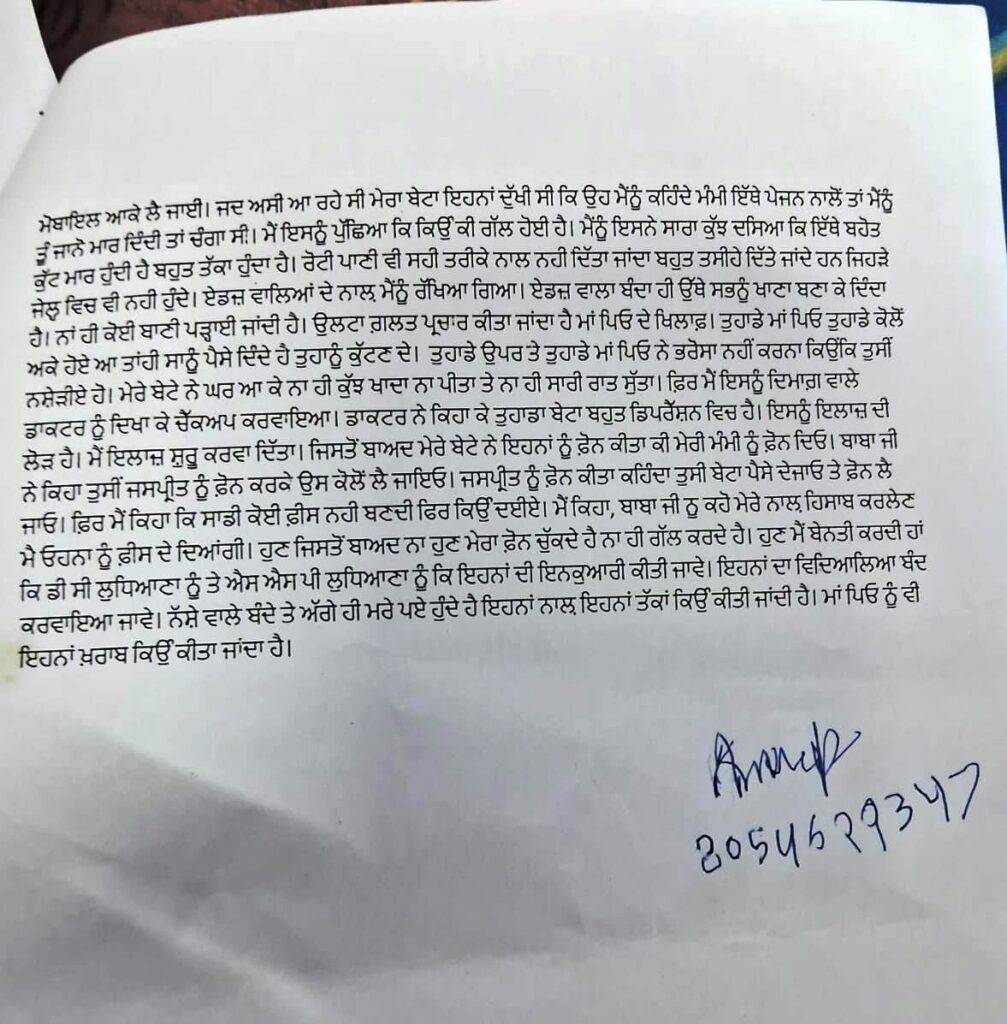 ਮੋਬਾਇਲ ਆਕੇ ਲੈ ਜਾਈ। ਜਦ ਅਸੀ ਆ ਰਹੇ ਸੀ ਮੇਰਾ ਬੇਟਾ ਇਹਨਾਂ ਦੁੱਖੀ ਸੀ ਕਿ ਉਹ ਮੈਨੂੰ ਕਹਿੰਦੇ ਮੰਮੀ ਇੱਥੇ ਪੇਜਨ ਨਾਲੋਂ ਤਾਂ ਮੈਨੂੰ
ਤੂੰ ਜਾਨੋ ਮਾਰ ਦਿੰਦੀ ਤਾਂ ਚੰਗਾ ਸੀ। ਮੈਂ ਇਸਨੂੰ ਪੁੱਛਿਆ ਕਿ ਕਿਉਂ ਕੀ ਗੱਲ ਹੋਈ ਹੈ। ਮੈਨੂੰ ਇਸਨੇ ਸਾਰਾ ਕੁੱਝ ਦਸਿਆ ਕਿ ਇੱਥੇ ਬਹੋਤ
ਕੁੱਟ ਮਾਰ ਹੁੰਦੀ ਹੈ ਬਹੁਤ ਤੱਕਾ ਹੁੰਦਾ ਹੈ। ਰੋਟੀ ਪਾਣੀ ਵੀ ਸਹੀ ਤਰੀਕੇ ਨਾਲ ਨਹੀ ਦਿੱਤਾ ਜਾਂਦਾ ਬਹੁਤ ਤਸੀਹੇ ਦਿੱਤੇ ਜਾਂਦੇ ਹਨ ਜਿਹੜੇ
ਜੇਲ੍ਹ ਵਿਚ ਵੀ ਨਹੀ ਹੁੰਦੇ। ਏਡਜ਼ ਵਾਲਿਆਂ ਦੇ ਨਾਲ ਮੈਨੂੰ ਰੱਖਿਆ ਗਿਆ। ਏਡਜ਼ ਵਾਲਾ ਬੰਦਾ ਹੀ ਉੱਥੇ ਸਭਨੂੰ ਖਾਣਾ ਬਣਾ ਕੇ ਦਿੰਦਾ
ਹੈ। ਨਾਂ ਹੀ ਕੋਈ ਬਾਣੀ ਪੜ੍ਹਾਈ ਜਾਂਦੀ ਹੈ। ਉਲਟਾ ਗ਼ਲਤ ਪ੍ਰਚਾਰ ਕੀਤਾ ਜਾਂਦਾ ਹੈ ਮਾਂ ਪਿਓ ਦੇ ਖਿਲਾਫ਼। ਤੁਹਾਡੇ ਮਾਂ ਪਿਓ ਤੁਹਾਡੇ ਕੋਲੋਂ
ਅਕੇ ਹੋਏ ਆ ਤਾਂਹੀ ਸਾਨੂੰ ਪੈਸੇ ਦਿੰਦੇ ਹੈ ਤੁਹਾਨੂੰ ਕੁੱਟਣ ਦੇ। ਤੁਹਾਡੇ ਉਪਰ ਤੇ ਤੁਹਾਡੇ ਮਾਂ ਪਿਓ ਨੇ ਭਰੋਸਾ ਨਹੀਂ ਕਰਨਾ ਕਿਉਂਕਿ ਤੁਸੀਂ
ਨਸ਼ੇੜੀਏ ਹੋ। ਮੇਰੇ ਬੇਟੇ ਨੇ ਘਰ ਆ ਕੇ ਨਾ ਹੀ ਕੁੱਝ ਖਾਦਾ ਨਾ ਪੀਤਾ ਤੇ ਨਾ ਹੀ ਸਾਰੀ ਰਾਤ ਸੁੱਤਾ। ਫ਼ਿਰ ਮੈਂ ਇਸਨੂੰ ਦਿਮਾਗ਼ ਵਾਲੇ
ਡਾਕਟਰ ਨੂੰ ਦਿਖਾ ਕੇ ਚੈੱਕਅਪ ਕਰਵਾਇਆ। ਡਾਕਟਰ ਨੇ ਕਿਹਾ ਕੇ ਤੁਹਾਡਾ ਬੇਟਾ ਬਹੁਤ ਡਿਪਰੈੱਸ਼ਨ ਵਿਚ ਹੈ। ਇਸਨੂੰ ਇਲਾਜ਼ ਦੀ
ਲੋੜ ਹੈ। ਮੈਂ ਇਲਾਜ਼ ਸ਼ੁਰੂ ਕਰਵਾ ਦਿੱਤਾ। ਜਿਸਤੋਂ ਬਾਅਦ ਮੇਰੇ ਬੇਟੇ ਨੇ ਇਹਨਾਂ ਨੂੰ ਫ਼ੋਨ ਕੀਤਾ ਕੀ ਮੇਰੀ ਮੰਮੀ ਨੂੰ ਫ਼ੋਨ ਦਿਓ। ਬਾਬਾ ਜੀ
ਨੇ ਕਿਹਾ ਤੁਸੀਂ ਜਸਪ੍ਰੀਤ ਨੂੰ ਫ਼ੋਨ ਕਰਕੇ ਉਸ ਕੋਲੋਂ ਲੈ ਜਾਇਓ। ਜਸਪ੍ਰੀਤ ਨੂੰ ਫ਼ੋਨ ਕੀਤਾ ਕਹਿੰਦਾ ਤੁਸੀ ਬੇਟਾ ਪੈਸੇ ਦੇਜਾਓ ਤੇ ਫ਼ੋਨ ਲੈ
ਜਾਓ। ਫ਼ਿਰ ਮੈਂ ਕਿਹਾ ਕਿ ਸਾਡੀ ਕੋਈ ਫ਼ੀਸ ਨਹੀ ਬਣਦੀ ਫਿਰ ਕਿਉਂ ਦਈਏ। ਮੈਂ ਕਿਹਾ, ਬਾਬਾ ਜੀ ਨੂ ਕਹੋ ਮੇਰੇ ਨਾਲ ਹਿਸਾਬ ਕਰਲੇਣ
ਮੈ ਓਹਨਾ ਨੂੰ ਫ਼ੀਸ ਦੇ ਦਿਆਂਗੀ। ਹੁਣ ਜਿਸਤੋਂ ਬਾਅਦ ਨਾ ਹੁਣ ਮੇਰਾ ਫ਼ੋਨ ਚੁੱਕਦੇ ਹੈ ਨਾ ਹੀ ਗੱਲ ਕਰਦੇ ਹੈ। ਹੁਣ ਮੈਂ ਬੇਨਤੀ ਕਰਦੀ ਹਾਂ
ਕਿ ਡੀ ਸੀ ਲੁਧਿਆਣਾ ਨੂੰ ਤੇ ਐਸ ਐਸ ਪੀ ਲੁਧਿਆਣਾ ਨੂੰ ਕਿ ਇਹਨਾਂ ਦੀ ਇਨਕੁਆਰੀ ਕੀਤੀ ਜਾਵੇ। ਇਹਨਾਂ ਦਾ ਵਿਦਿਆਲਿਆ ਬੰਦ
ਕਰਵਾਇਆ ਜਾਵੇ। ਨੱਸ਼ੇ ਵਾਲੇ ਬੰਦੇ ਤੇ ਅੱਗੇ ਹੀ ਮਰੇ ਪਏ ਹੁੰਦੇ ਹੈ ਇਹਨਾਂ ਨਾਲ ਇਹਨਾਂ ਤੱਕਾਂ ਕਿਉਂ ਕੀਤੀ ਜਾਂਦੀ ਹੈ। ਮਾਂ ਪਿਓ ਨੂੰ ਵੀ
ਇਹਨਾਂ ਖ਼ਰਾਬ ਕਿਉਂ ਕੀਤਾ ਜਾਂਦਾ ਹੈ।
8054629347